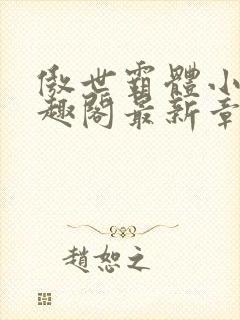 傲世霸體小
趣閣最新章
趙恕之